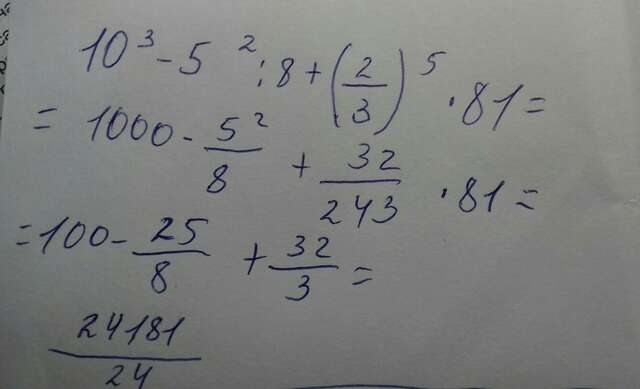 10³ - 5² : 8 + (2/3)⁵ · 81 =
= 1000 - 5²/8 + 32/243 · 81 =
= 100 - 25/8 + 32/3 =
24181/24